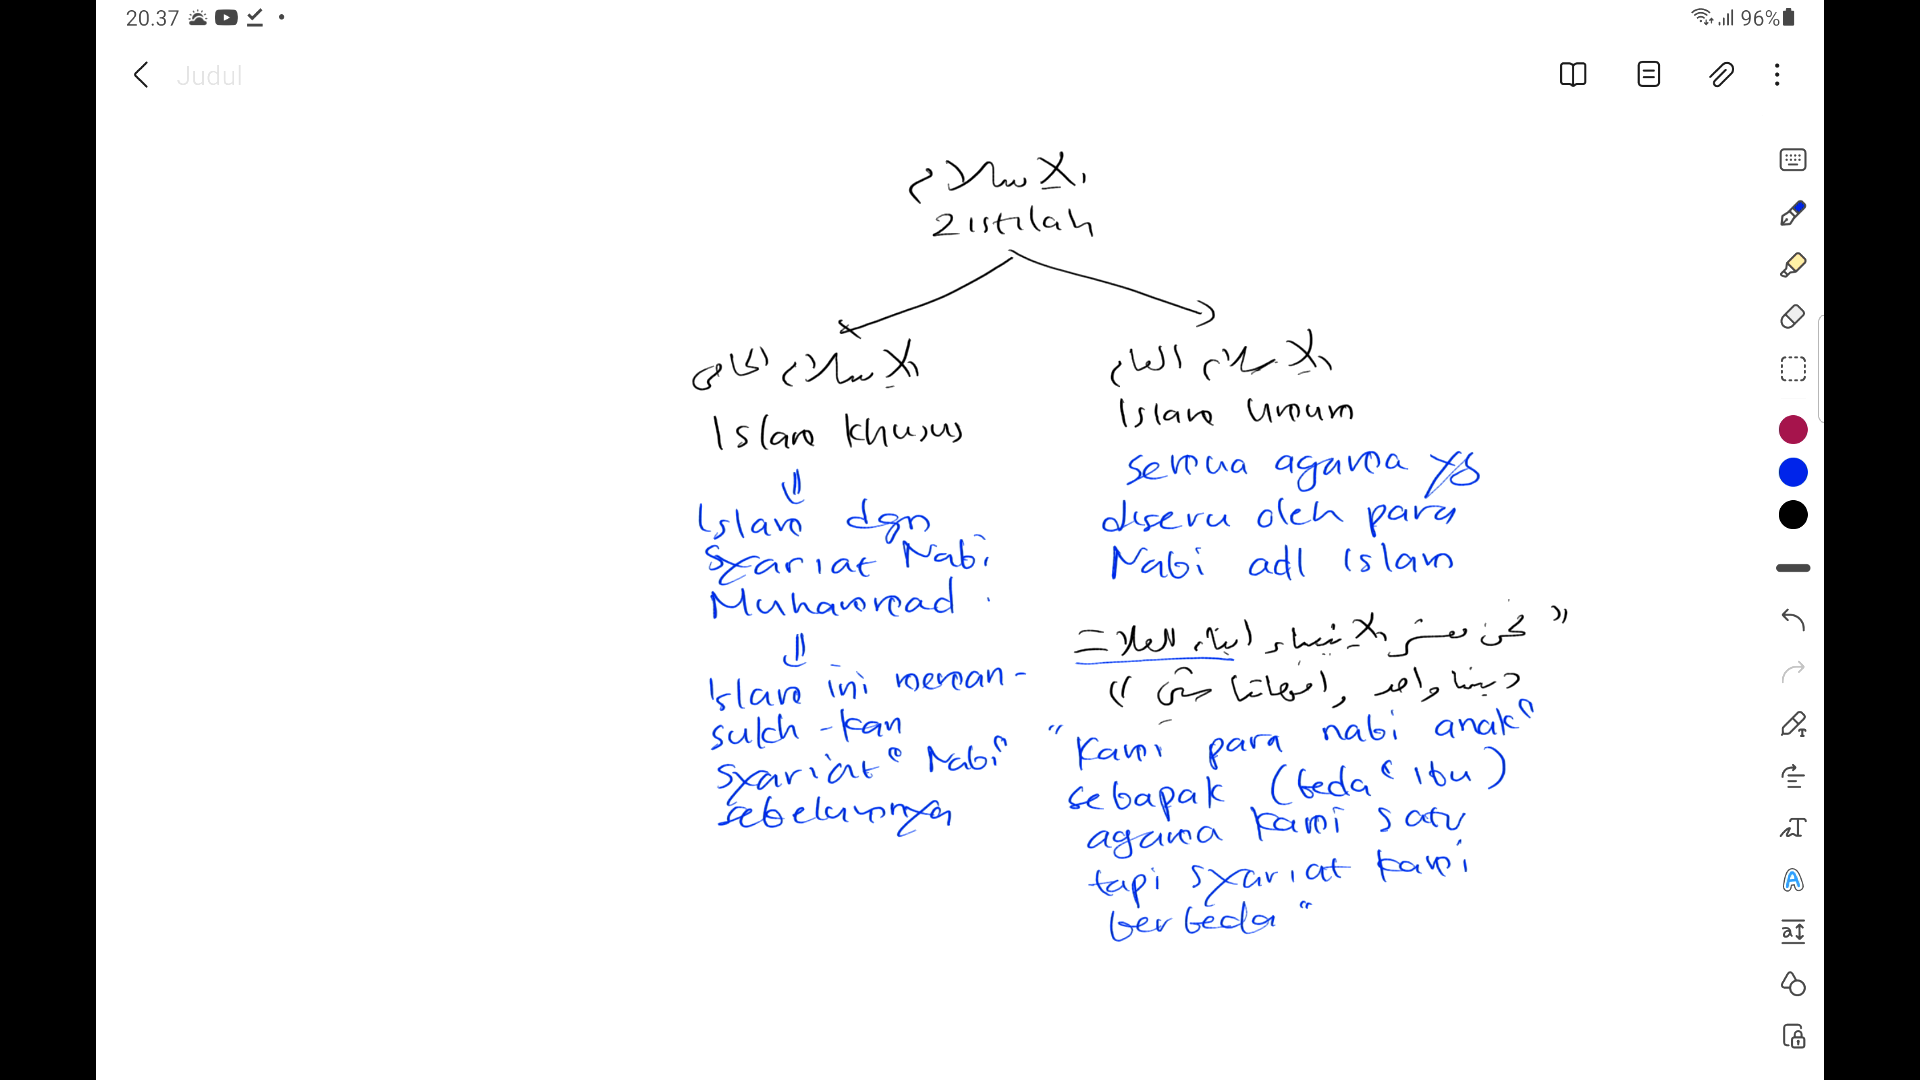 20.37
96%
Judul
الإسلام
2 istilah
الإسلام الخاص
Islam khusus
Islam dgn
Syariat Nabi
Muhammad.
Islam ini meman-
sukh-kan
syariat" Nabi"
sebelumnya
الإسلام العام
Islam umum
semua agama yg
diseru oleh para
Nabi adl Islam
"نحن معشر الإنبياء ابناء العلات
ديننا واحد وامهاتنا شتى"
"kami para nabi anak"
sebapak (beda" ibu)
agama kami satu
tapi syariat kami
berbeda"